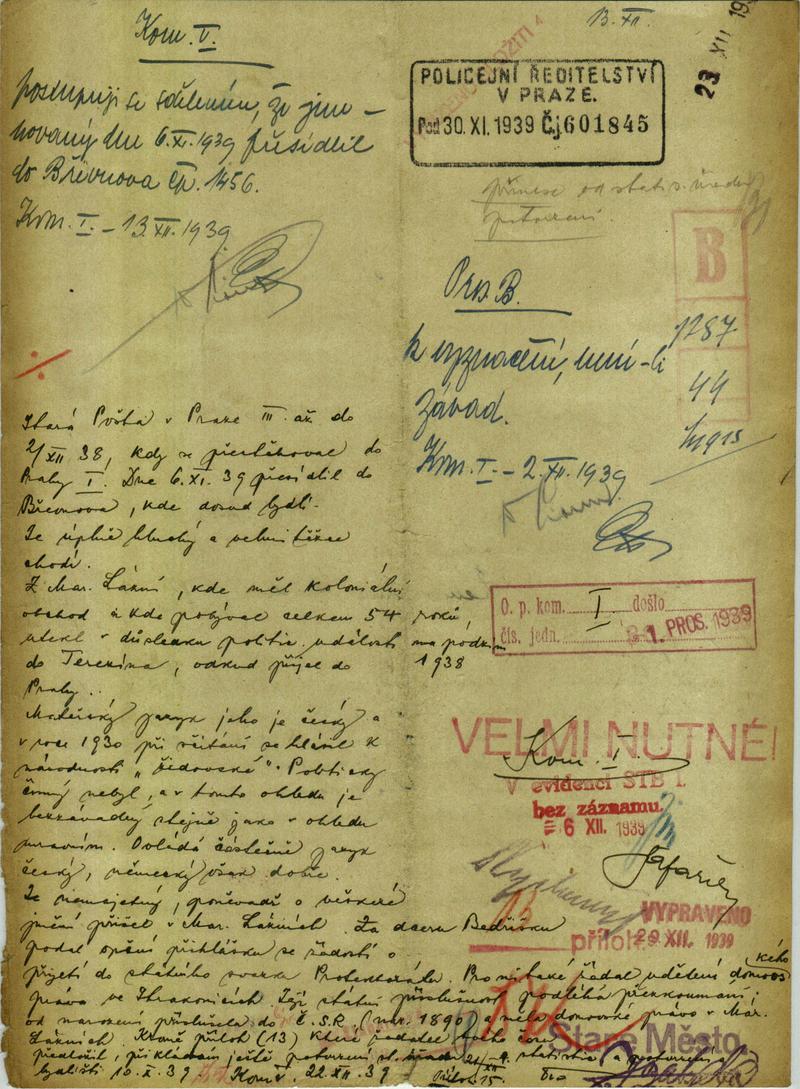 Kom. V.
postupuji se sdělením, že jme-
novaný dne 6.XI.1939 přesídlil
do Břevnova čp. 1456.
Kom. I. - 13.XII.1939
Stará Pošta v Praze III. až do
2/XII 38, kdy se přestěhoval do
Prahy I. Dne 6.XI.39 přesídlil do
Břevnova, kde dosud bydlí.
Je úplně hluchý a velmi těžce
chodí.
Z Mar. Lázní, kde měl koloniální
obchod a kde pobýval celkem 54 roků,
utekl v důsledku politic. událostí na podzim
do Terezína, odkud přijel do 1938
Prahy.
Mateřský jazyk jeho je český a
v roce 1930 při sčítání se hlásil k
národnosti "židovské". Politicky
činný nebyl, a v tomto ohledu je
bezzávadný stejně jako v ohledu
mravním. Ovládá částečně jazyk
český, německý však dobře.
Je nemajetný, poněvadž o veškeré
jmění přišel v Mar. Lázních. Za dceru Bedřišku
podal opční přihlášku se žádostí o
přijetí do státního svazku Protektorátu. Pro ni také žádal udělení domovského
práva ve Strakonicích. Její státní příslušnost podléhá přezkoumání;
od narození příslušela do Č.S.R. (nar. 1890) a měla domovské právo v Mar.
Lázních. Kromě příloh (13) které žadatel
předložil, přikládám ještě potvrzení
bydlišti 10.X.39 Kom. 21.XII.39
13.XII.
23 XII 19
POLICEJNÍ ŘEDITELSTVÍ
V PRAZE.
Pod 30.XI.1939 Čj 601845
přinese od statis. úřadu
potvrzení.
B
Pres. B.
k vyznačení, není-li
závad.
Kom. I. - 2.XII.1939
1287
44
O. p. kom. I. došlo
čís. jedn. 1. PROS. 1939
VELMI NUTNÉ!
Kom. I.
V evidenci STB I.
bez záznamu.
6 XII. 1939
VYPRAVENO
příloh 29 XII. 1939
Staré Město